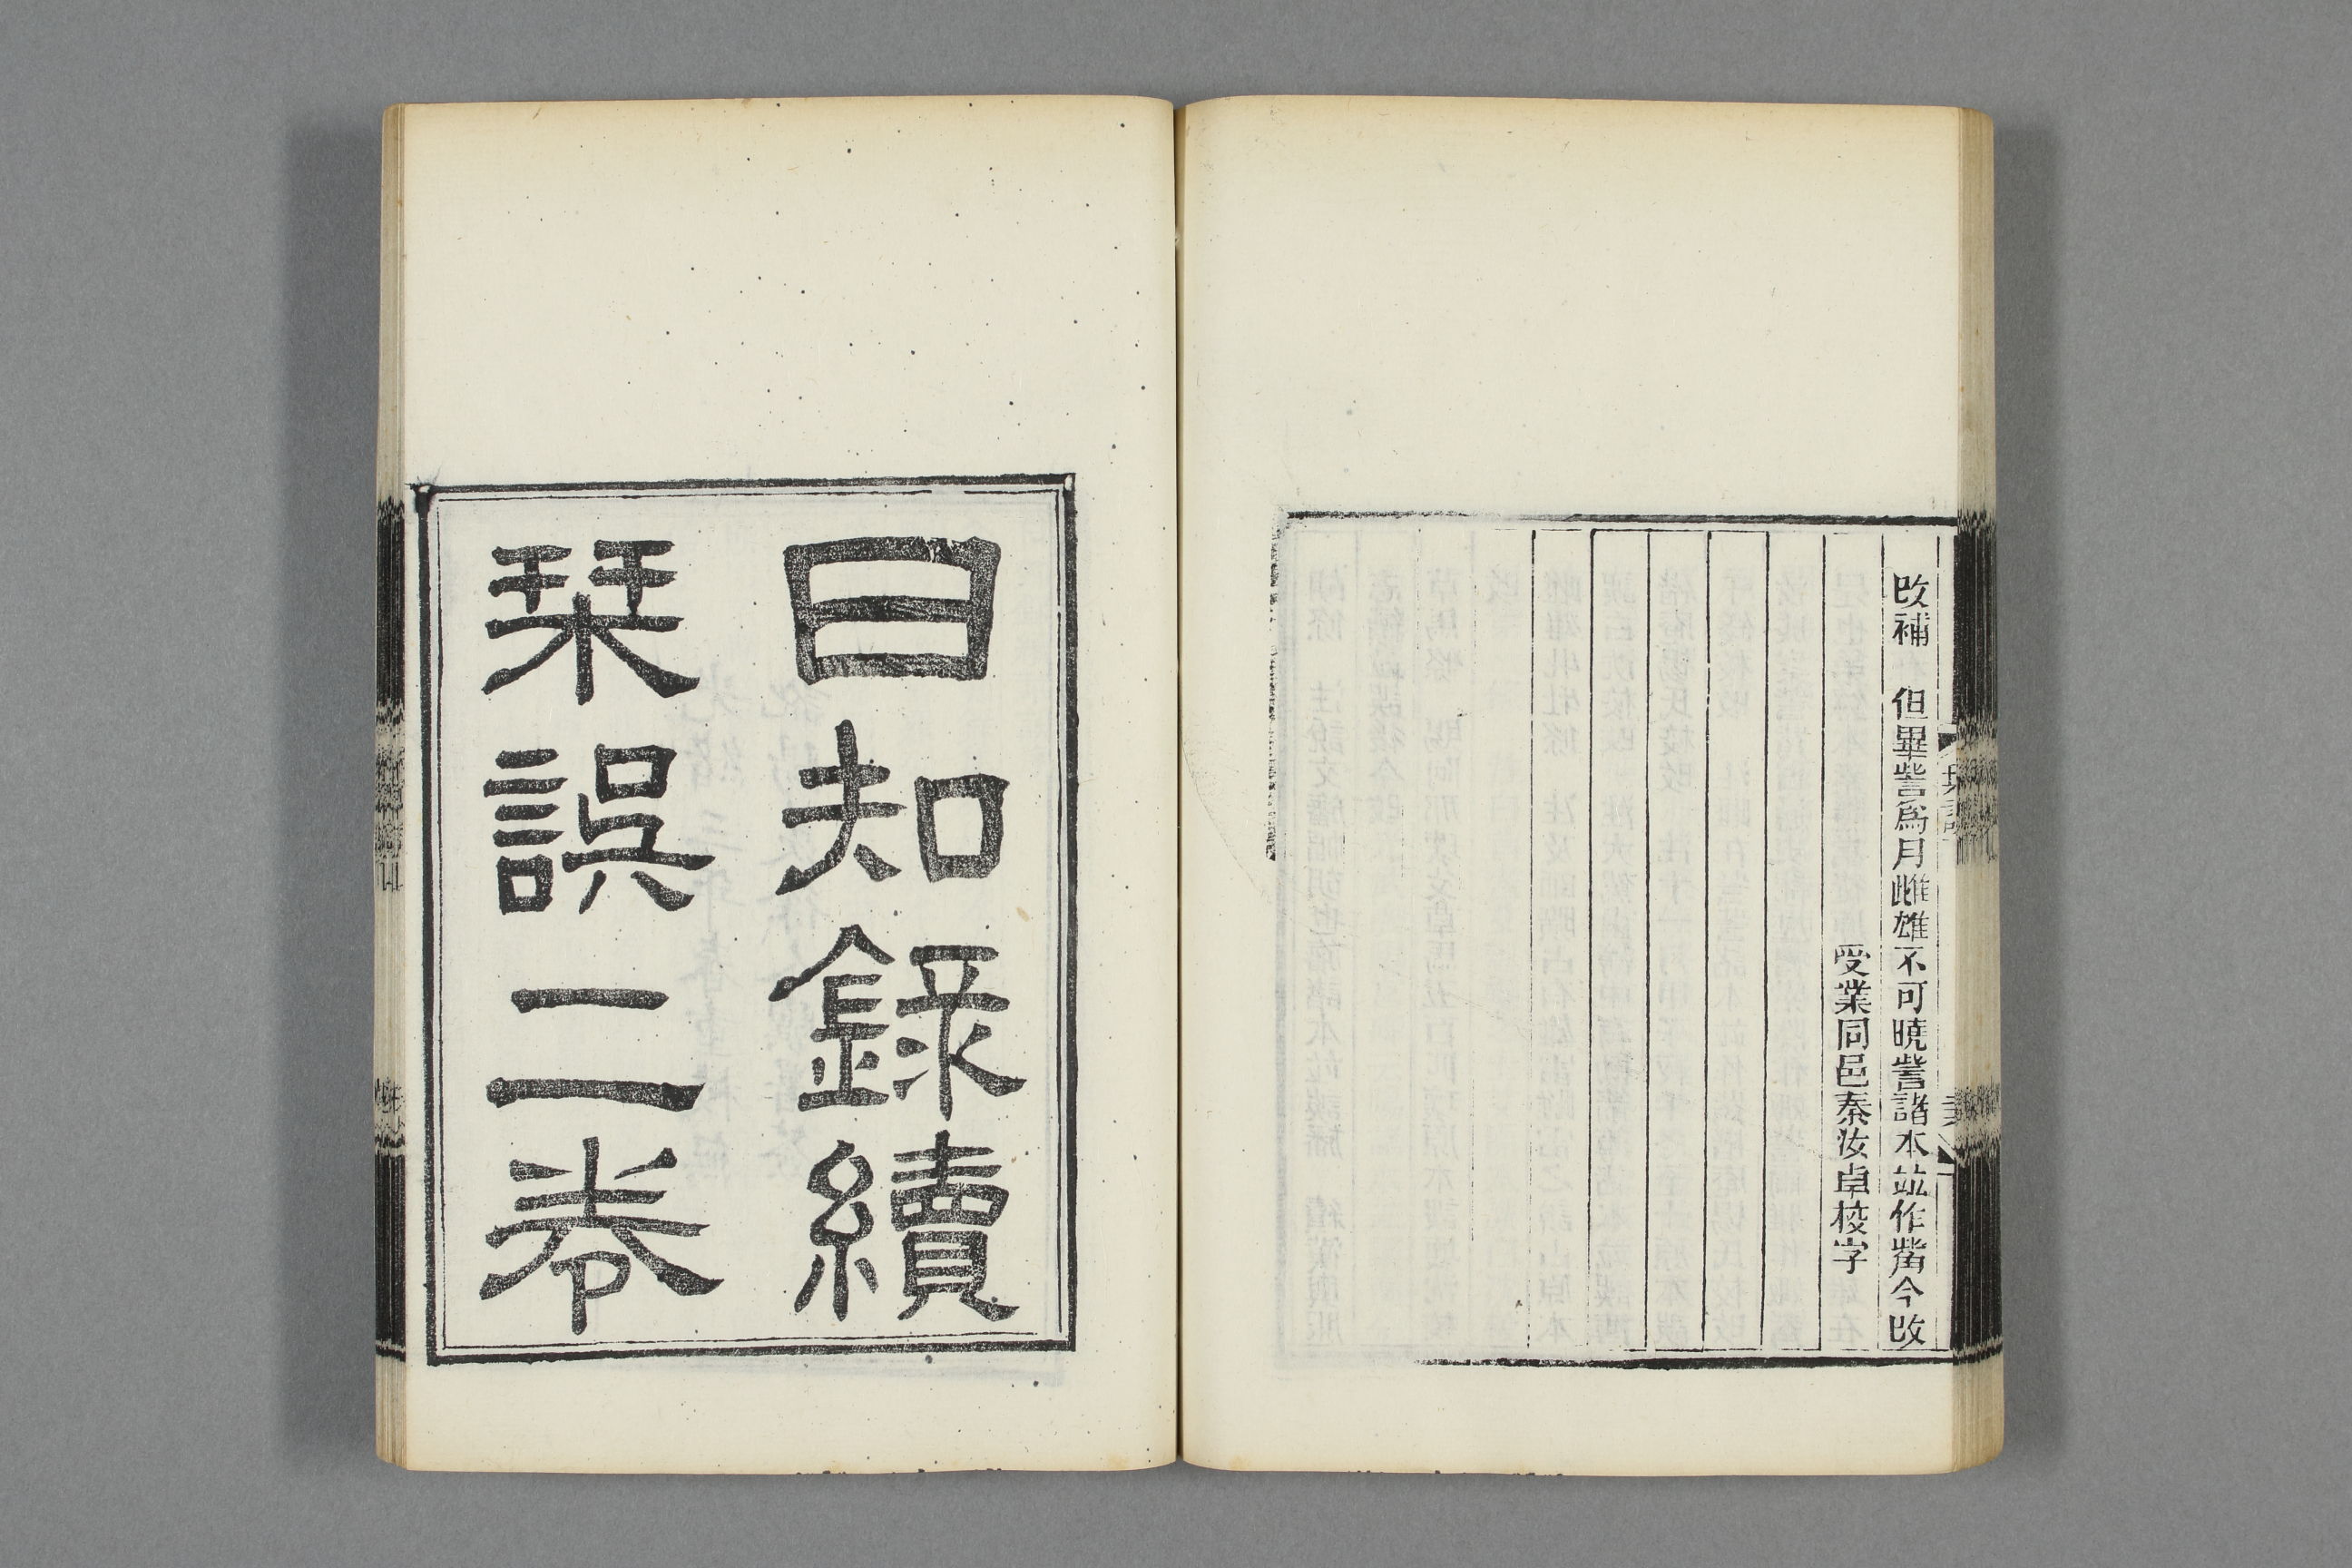 改補　但畢訾爲月雌雄不可曉訾諸本竝作觜今改
受業同邑秦汝卓校字
日知錄續
栞誤二卷